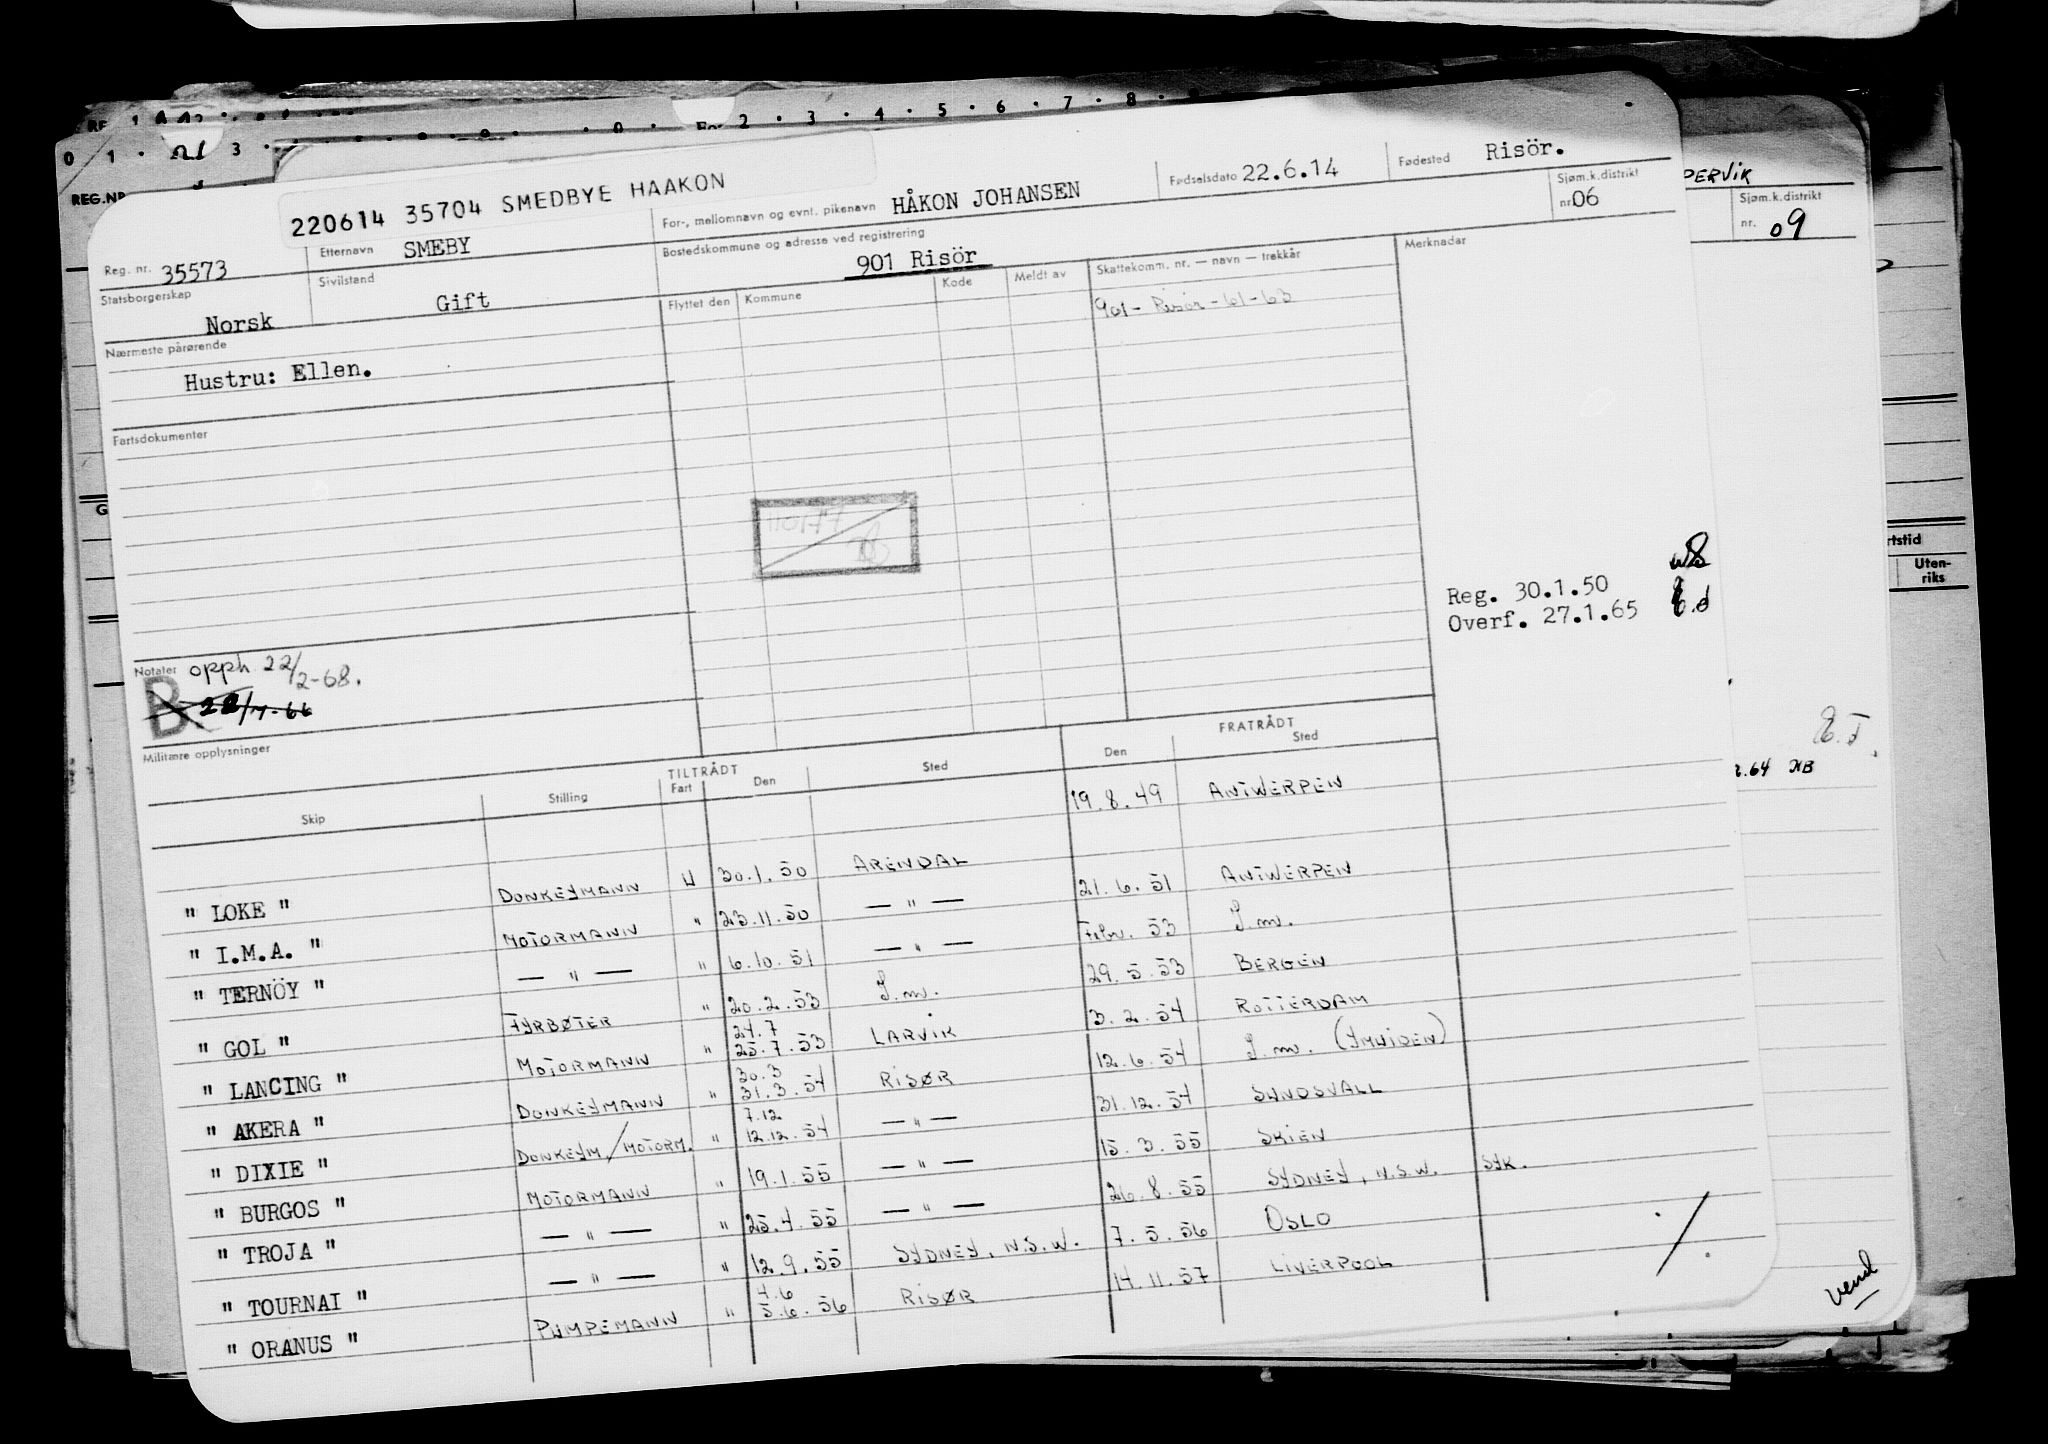 0 1 · 3 · 0 · 2 · 3 · 4 · 5 · 6 · 7 · 8
REG.NR
220614 35704 SMEDBYE HAAKON
Reg. nr. 35573
Etternavn SMEBY
For-, mellomnavn og evnt. pikenavn HÅKON JOHANSEN
Fødselsdato 22.6.14
Fødested Risör.
Statsborgerskap Norsk
Sivilstand Gift
Bostedskommune og adresse ved registrering 901 Risör
Sjøm.k.distrikt nr. 06
Nærmeste pårørende
Hustru: Ellen.
Flyttet den Kommune Kode Meldt av Skattekomm. nr. — navn — trekkår Merknader
901 - Risör - 61 - 63
Fartsdokumenter
Reg. 30.1.50
Overf. 27.1.65
Notater opph 22/2-68.
B
Militære opplysninger
TILTRÅDT FRATRÅDT
Skip Stilling Fart Den Sted Den Sted
19.8.49 ANTWERPEN
" LOKE " DONKEYMANN U 30.1.50 ARENDAL
" I.M.A. " MOTORMANN " 23.11.50 — " — 21.6.51 ANTWERPEN
" TERNÖY " — " — " 6.10.51 — " — Febr. 53 I.m.
" GOL " FYRBØTER " 20.2.53 I.m. 29.5.53 BERGEN
" LANCING " MOTORMANN " 24.7 25.7.53 LARVIK 3.2.54 ROTTERDAM
" AKERA " DONKEYMANN " 30.3 31.3.54 RISØR 12.6.54 I.m. (YMUIDEN)
" DIXIE " DONKEYM/MOTORM. " 7.12 12.12.54 — " — 31.12.54 SUNDSVALL
" BURGOS " MOTORMANN " 19.1.55 — " — 15.3.55 SKIEN
" TROJA " — " — " 25.4.55 — " — 26.8.55 SYDNEY, N.S.W. SYK.
" TOURNAI " — " — " 12.9.55 SYDNEY, N.S.W. 7.5.56 OSLO
" ORANUS " PUMPEMANN " 4.6 5.6.56 RISØR 14.11.57 LIVERPOOL
PERVIK
Sjøm.k.distrikt
nr. 09
rtstid
Uten-
riks
.64 KB
vend